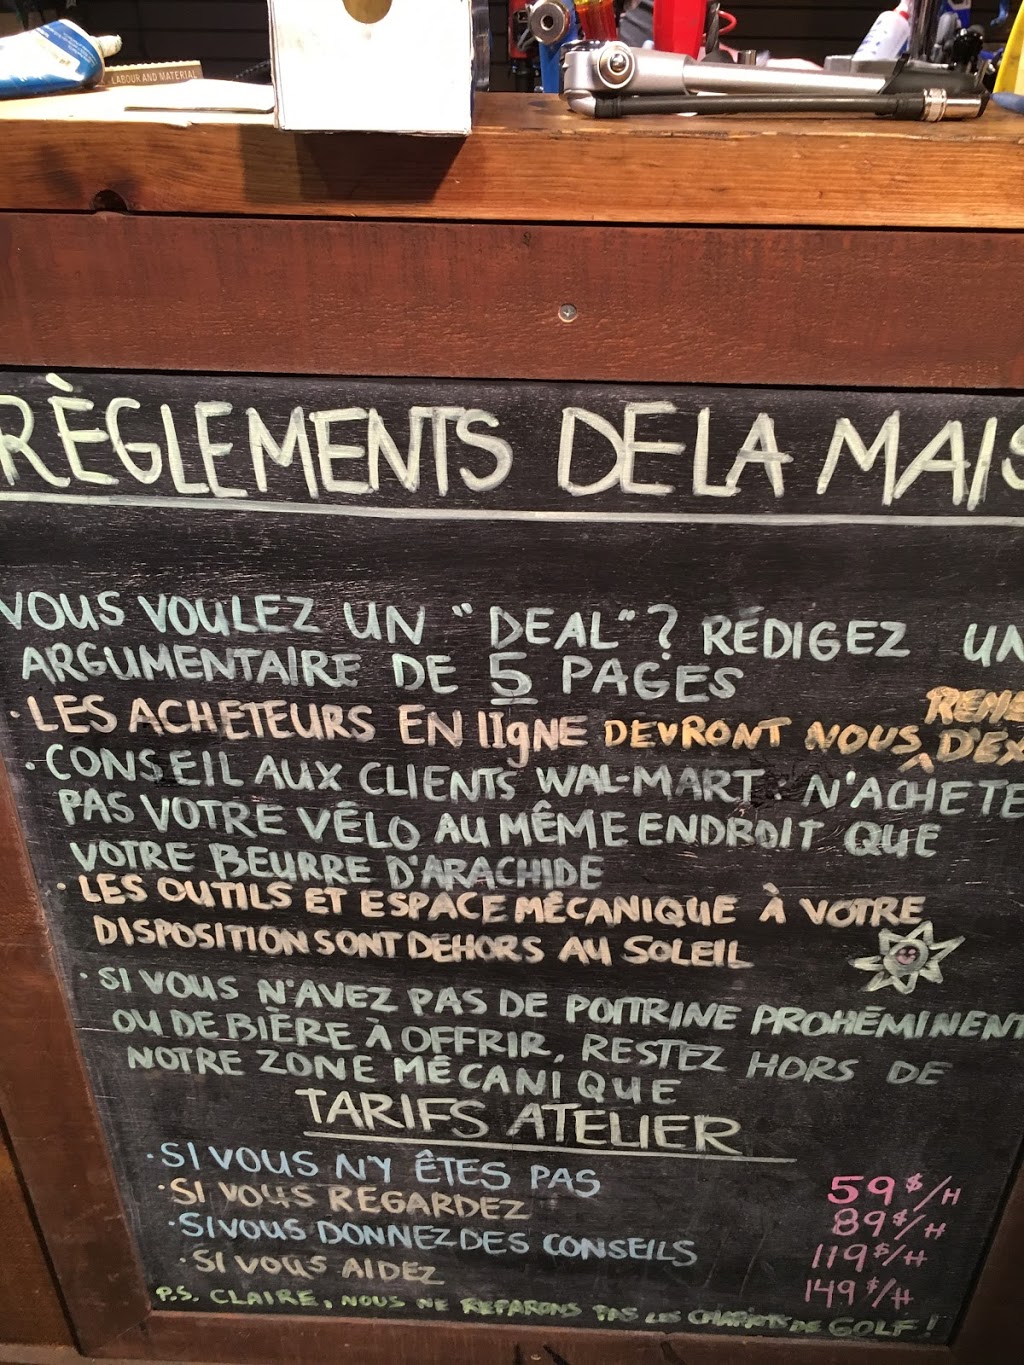 LABOUR AND MATERIAL
RÈGLEMENTS DE LA MAIS
VOUS VOULEZ UN "DEAL"? RÉDIGEZ UN
ARGUMENTAIRE DE 5 PAGES
· LES ACHETEURS EN lIgNE DEVRONT NOUS D'EX
· CONSEIL AUX CLIENTS WAL-MART: N'ACHETE
PAS VOTRE VÉLO AU MÊME ENDROIT QUE
VOTRE BEURRE D'ARACHIDE
· LES OUTILS ET ESPACE MÉCANIQUE À VOTRE
DISPOSITION SONT DEHORS AU SOLEIL
· SI VOUS N'AVEZ PAS DE POITRINE PROHÉMINENT
OU DE BIÈRE À OFFRIR, RESTEZ HORS DE
NOTRE ZONE MÉCANIQUE
TARIFS ATELIER
· SI VOUS N'Y ÊTES PAS 59$/H
· SI VOUS REGARDEZ 89$/H
· SI VOUS DONNEZ DES CONSEILS 119$/H
· SI VOUS AIDEZ 149$/H
P.S. CLAIRE, NOUS NE REPARONS PAS LES CHARIOTS DE GOLF!